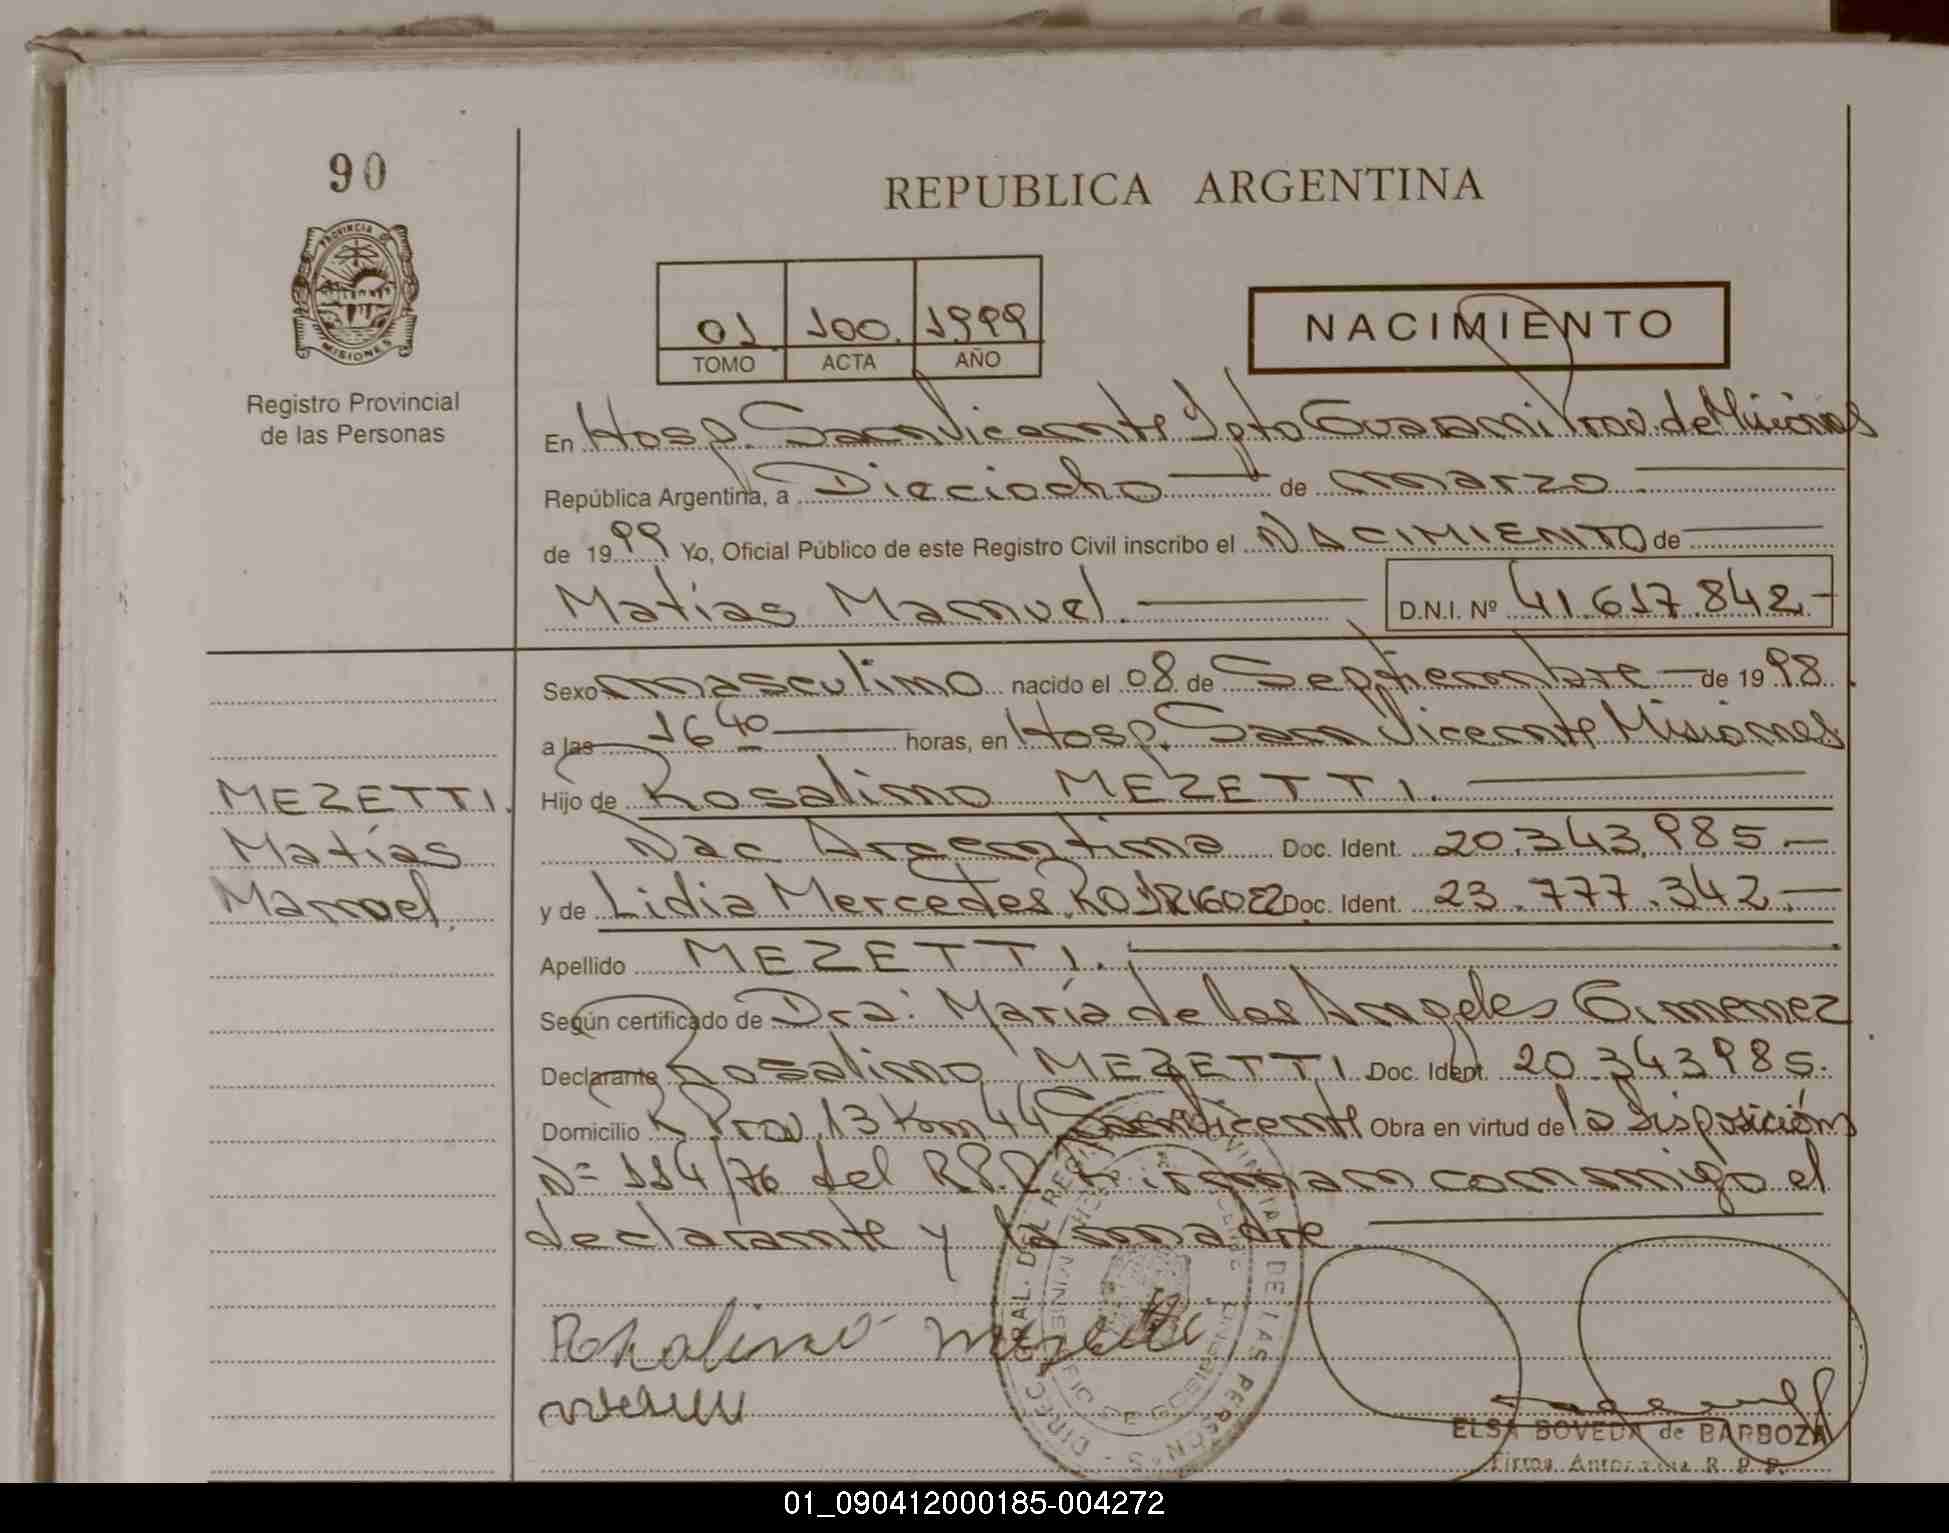 90
REPUBLICA ARGENTINA
PROVINCIA DE
MISIONES
Registro Provincial
de las Personas
01. 100. 1999
TOMO ACTA AÑO
NACIMIENTO
En Hosp. San Vicente Dpto Guarani Prov. de Misiones
República Argentina, a Dieciocho de marzo
de 1999 Yo, Oficial Público de este Registro Civil inscribo el NACIMIENTO de
Matías Manuel. D.N.I. Nº 41.617.842.-
Sexo masculino nacido el 08 de Septiembre de 1998.
a las 16 40 horas, en Hosp. San Vicente Misiones
Hijo de Rosalino MEZETTI.
Nac. Argentina Doc. Ident. 20.343.985.-
y de Lidia Mercedes RODRIGUEZ Doc. Ident. 23.777.342.-
Apellido MEZETTI.
Según certificado de Dra: María de los Angeles Gimenez
Declarante Rosalino MEZETTI Doc. Ident. 20.343985.
Domicilio R Prov. 13 Km 44 San Vicente Obra en virtud de la Disposición
Nº 114/76 del R.P.P. Firman conmigo el
declarante y la madre
MEZETTI.
Matías
Manuel.
Rosalino Mezetti
DIRECC. GRAL. DEL REGISTRO PROVINCIAL DE LAS PERSONAS
ELSA BOVEDA de BARBOZA
Firma Autorizada R. P. P.
01_090412000185-004272